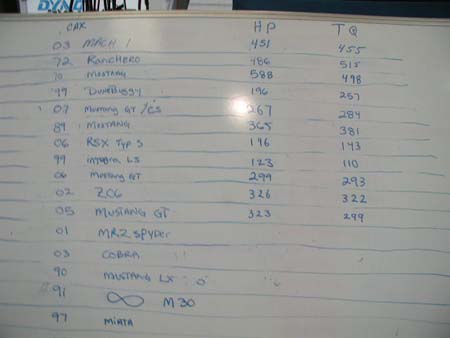 DYNO
CAR HP TQ
03 MACH 1 451 455
72 RANCHERO 486 515
10 MUSTANG 588 498
99 DuneBuggy 196 257
07 Mustang GT/CS 267 284
89 MUSTANG 365 381
06 RSX Typ S 196 143
99 integra LS 123 110
06 Mustang GT 299 293
02 Z06 326 322
05 MUSTANG GT 323 299
01 MR2 Spyder
03 COBRA
90 MUSTANG LX
91 ∞ M30
97 MIATA